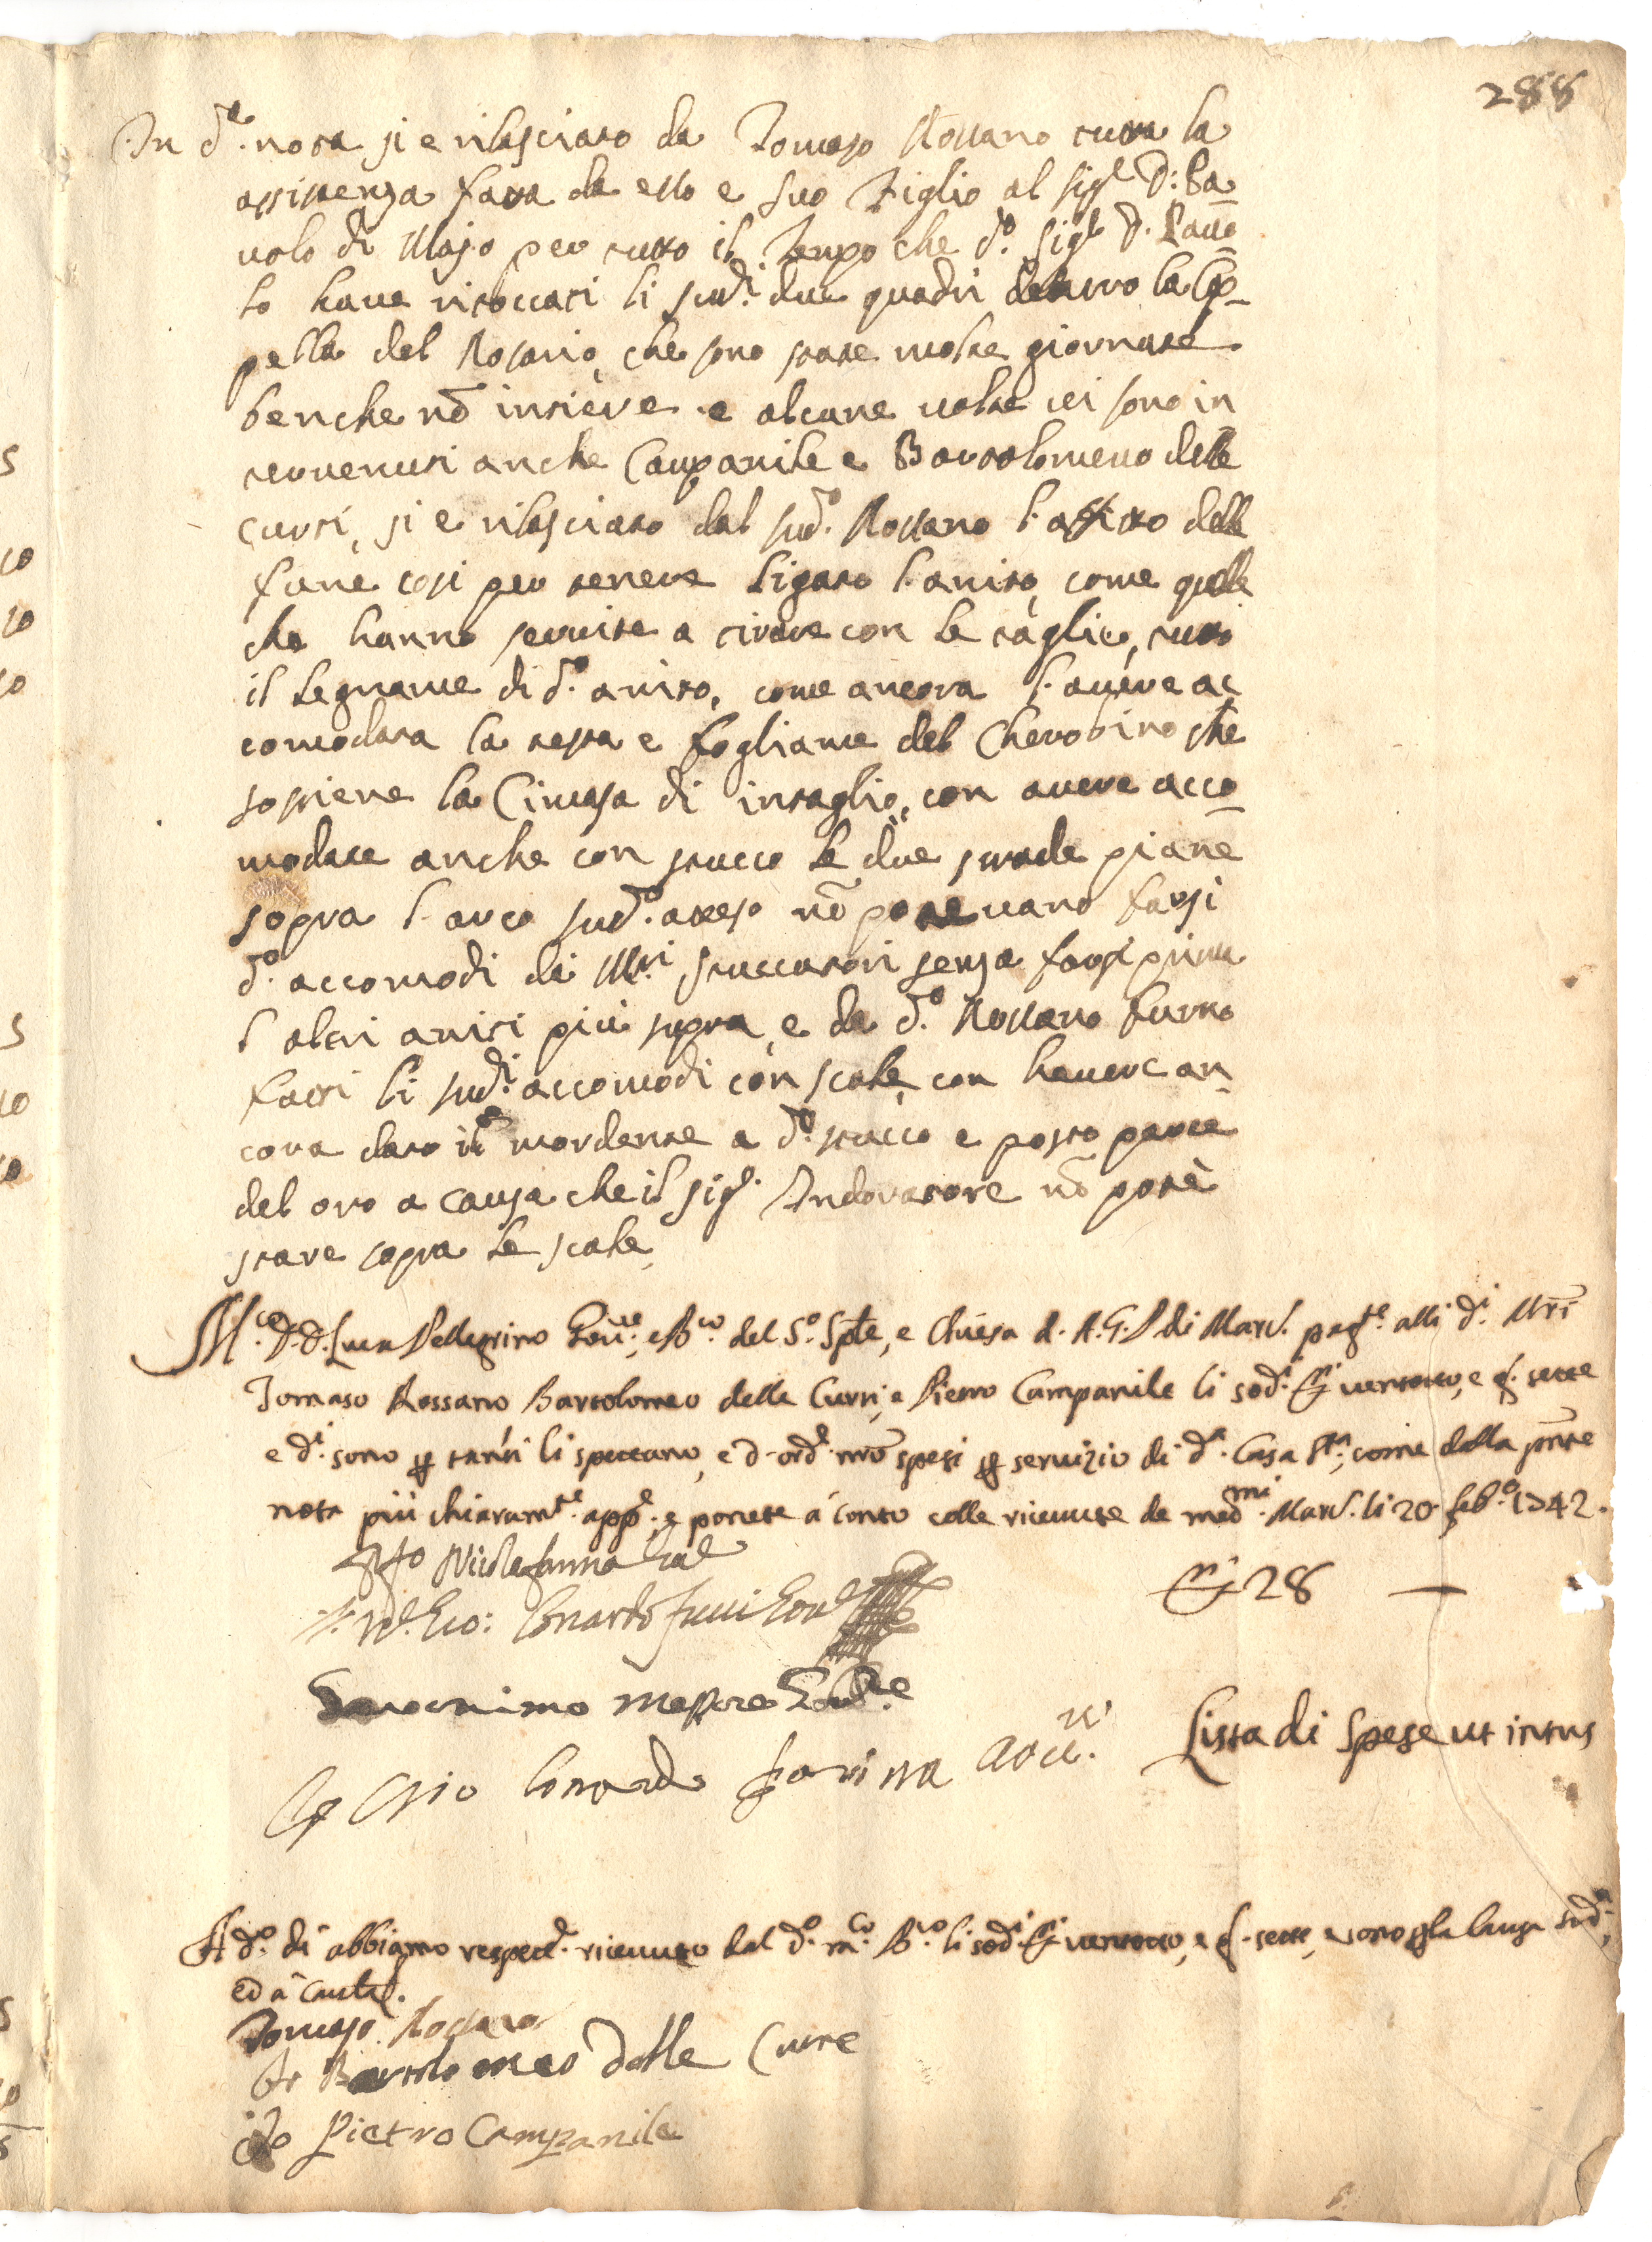 288
In d.ª nota si è rilasciato da Tomaso Rossano tutta la
assistenza fatta da esso e suo Figlio al sig.r D: Pa
uolo di Majo per tutto il Tempo che d.º sig.r D. Pauo
lo haue ritoccati li sud.i due quadri dentro la Cap=
pella del Rosario, che sono state molte giornate
benche nō intieve e alcune uolte ui sono in
teruenuti anche Campanile e Bartolomeuo delle
Curti, si e rilasciato dal sud.º Rossano l'affitto delle
fune cosi per tenere ligato l'anito, come quelle
che hanno seruite a tirare con le taglie, tutto
il legname di d.º anito, come ancora l'auere ac
comodata la testa e fogliame del Cherobino che
sostiene la Cimasa di intaglio, con auere acco
modate anche con stucco le due strade piane
sopra l'arco sud.º atteso nō poteuano farsi
d.º accomodi da M.ri stuccatori senza farsi prima
l'altri aniti più sopra, e da d.º Rossano furno
fatti li sud.i accomodi con scale, con hauere an
cora dato il mordente a d.º stucco e posto parte
del oro a causa che il sig.r Indoratore nō potè
stare sopra le scale,
M.co D. D. Luca Pellegrino Gou.re, e B.co del S.º Sp̄le, e Chiesa d. A. G. P. di Mard. pag.te alli d.i Mri
Tomaso Rossano Bartolomeo delle Curti, e Pietro Campanile li sod.i D.i uentotto, e g. sette
e d.i sono p tanti li spettano, e d'ord.e nrō spesi p seruizio di d.ª Casa S.ta, come dalla pnte
nota più chiaram.te app.e, e ponete à conto colle riceuute de med.mi Mard. li 20 feb.º 1742.
Geronimo Mastre Gou.re
D.i 28 —
Lista di spese ut intus
A d.º di abbiamo respect.e riceuuto dal d.º m.co B.co li sod.i D.i uentotto, e g. sette, e sono p la causa sud.ª,
ed à cautel.
Tomaso Rossano
Io Bartolomeo delle Curte
io Pietro Campanile